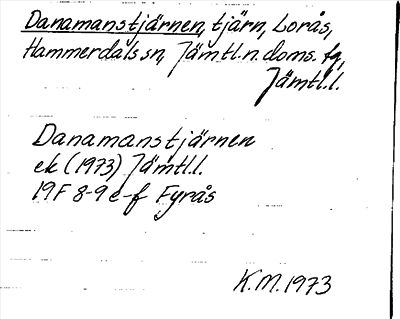 Danamanstjärnen, tjärn, Lorås,
Hammerdals sn, Jämtl. n. doms. fg,
Jämtl.l.
Danamanstjärnen
ek (1973) Jämtl.l.
19F 8-9 e-f Fyrås
K.M. 1973